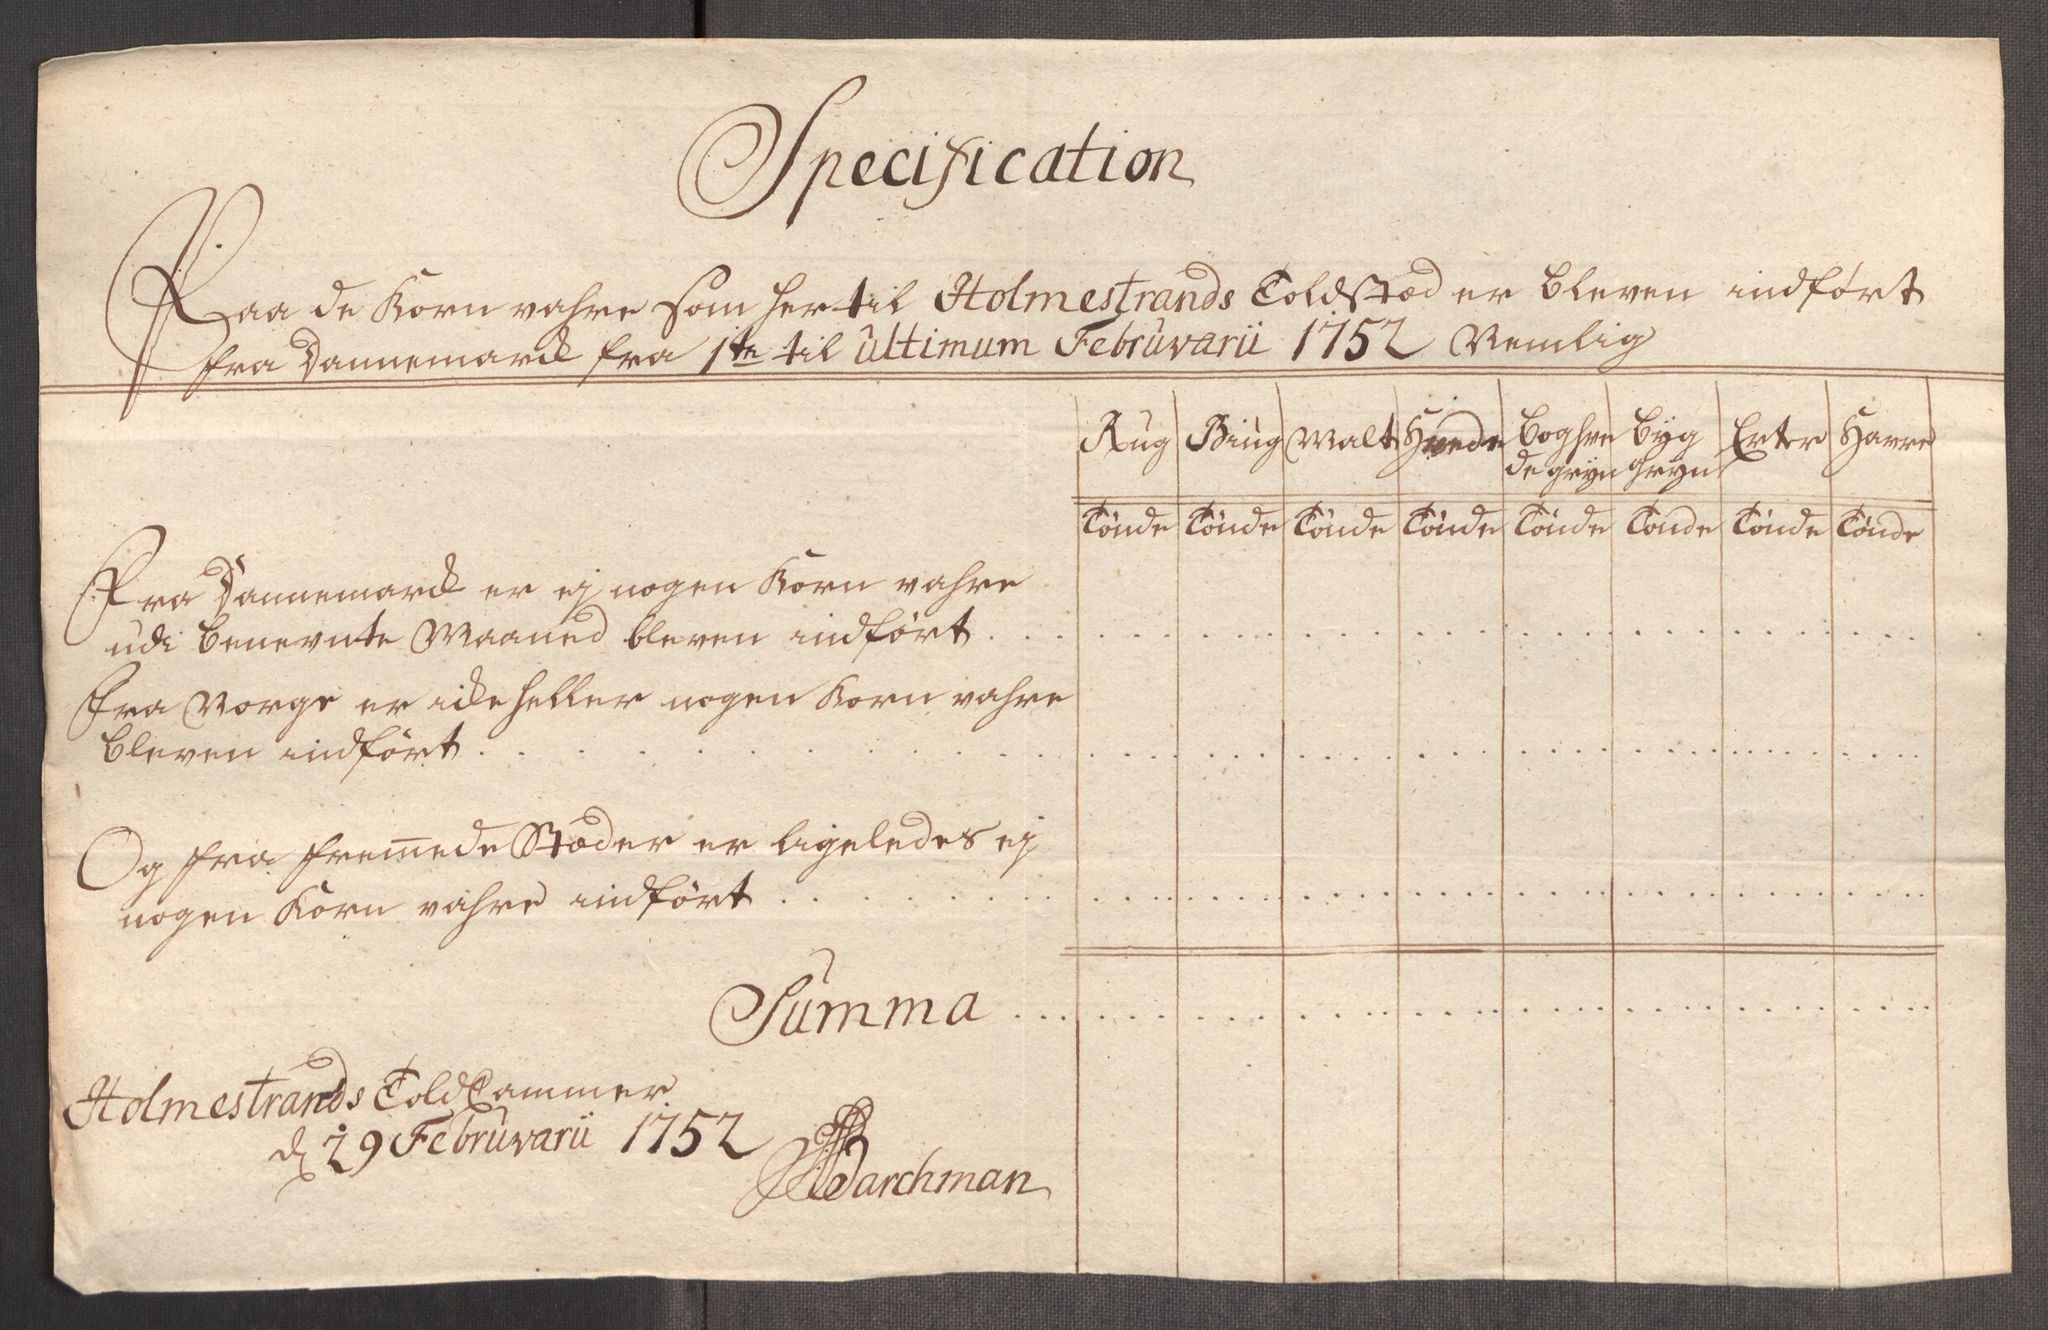 Specification
Paa de Korn vahre som her til Holmestrands Toldstæd er bleven indført
fra Dannemarck fra 1te til ultimum Febrüvarii 1752 Nemlig
Rug Biug Malt Hvede Boghve Byg Erter Havre
de gryn gryn
Tønde Tønde Tønde Tønde Tønde Tønde Tønde Tønde
Fra Dannemarck er ej nogen Korn vahre
udi benevnte Maaned bleven indført
Fra Norge er icke heller nogen Korn vahre
bleven indført
Og fra fremmede Stæder er ligeledes ej
nogen Korn vahre indført
Summa
Holmestrands Told Cammer
d 29 Febrüvarii 1752
Barchman